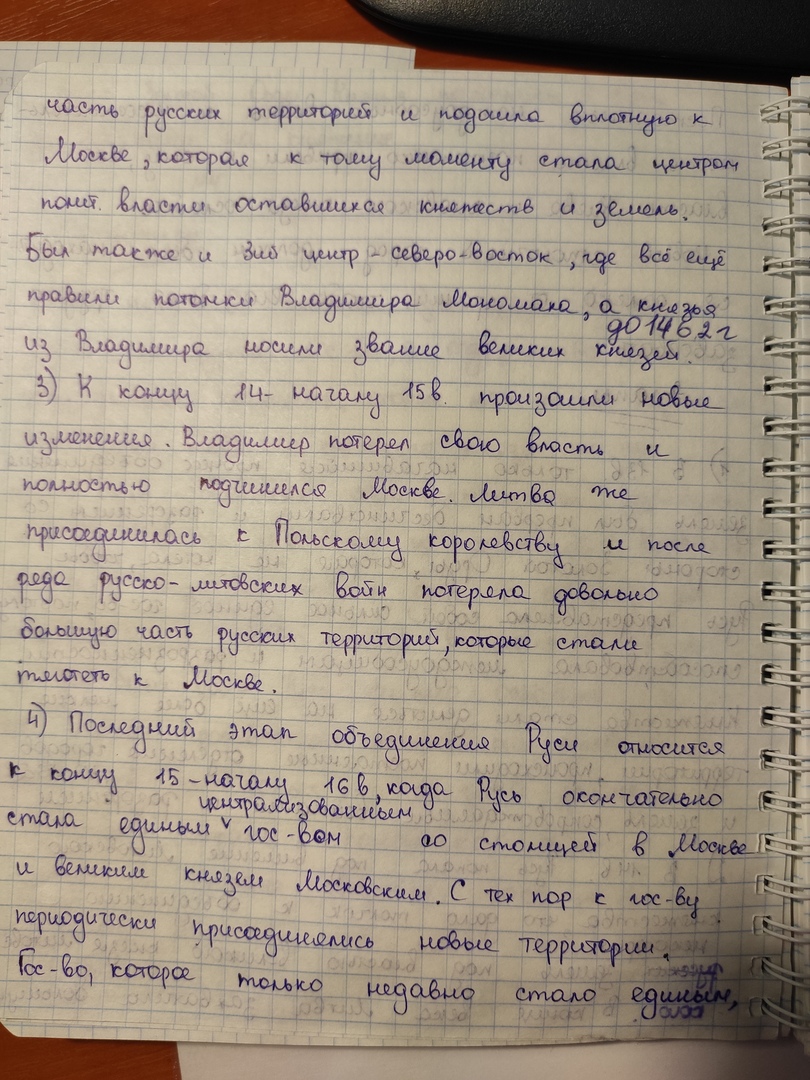 часть русских территорий и подошла вплотную к
Москве, которая к тому моменту стала центром
полит. власти оставшихся княжеств и земель.
Был также и 3ий центр - северо-восток, где всё ещё
правили потомки Владимира Мономаха, а князья
до 1462 г
из Владимира носили звание великих князей.
3) К концу 14- началу 15в. произошли новые
изменения. Владимир потерял свою власть и
полностью подчинился Москве. Литва же
присоединилась к Польскому королевству и после
ряда русско-литовских войн потеряла довольно
большую часть русских территорий, которые стали
тяготеть к Москве.
4) Последний этап объединения Руси относится
к концу 15-началу 16в, когда Русь окончательно
централизованным
стала единым ˅ гос-вом со столицей в Москве
и великим князем Московским. С тех пор к гос-ву
периодически присоединялись новые территории.
Гос-во, которое только недавно стало единым,